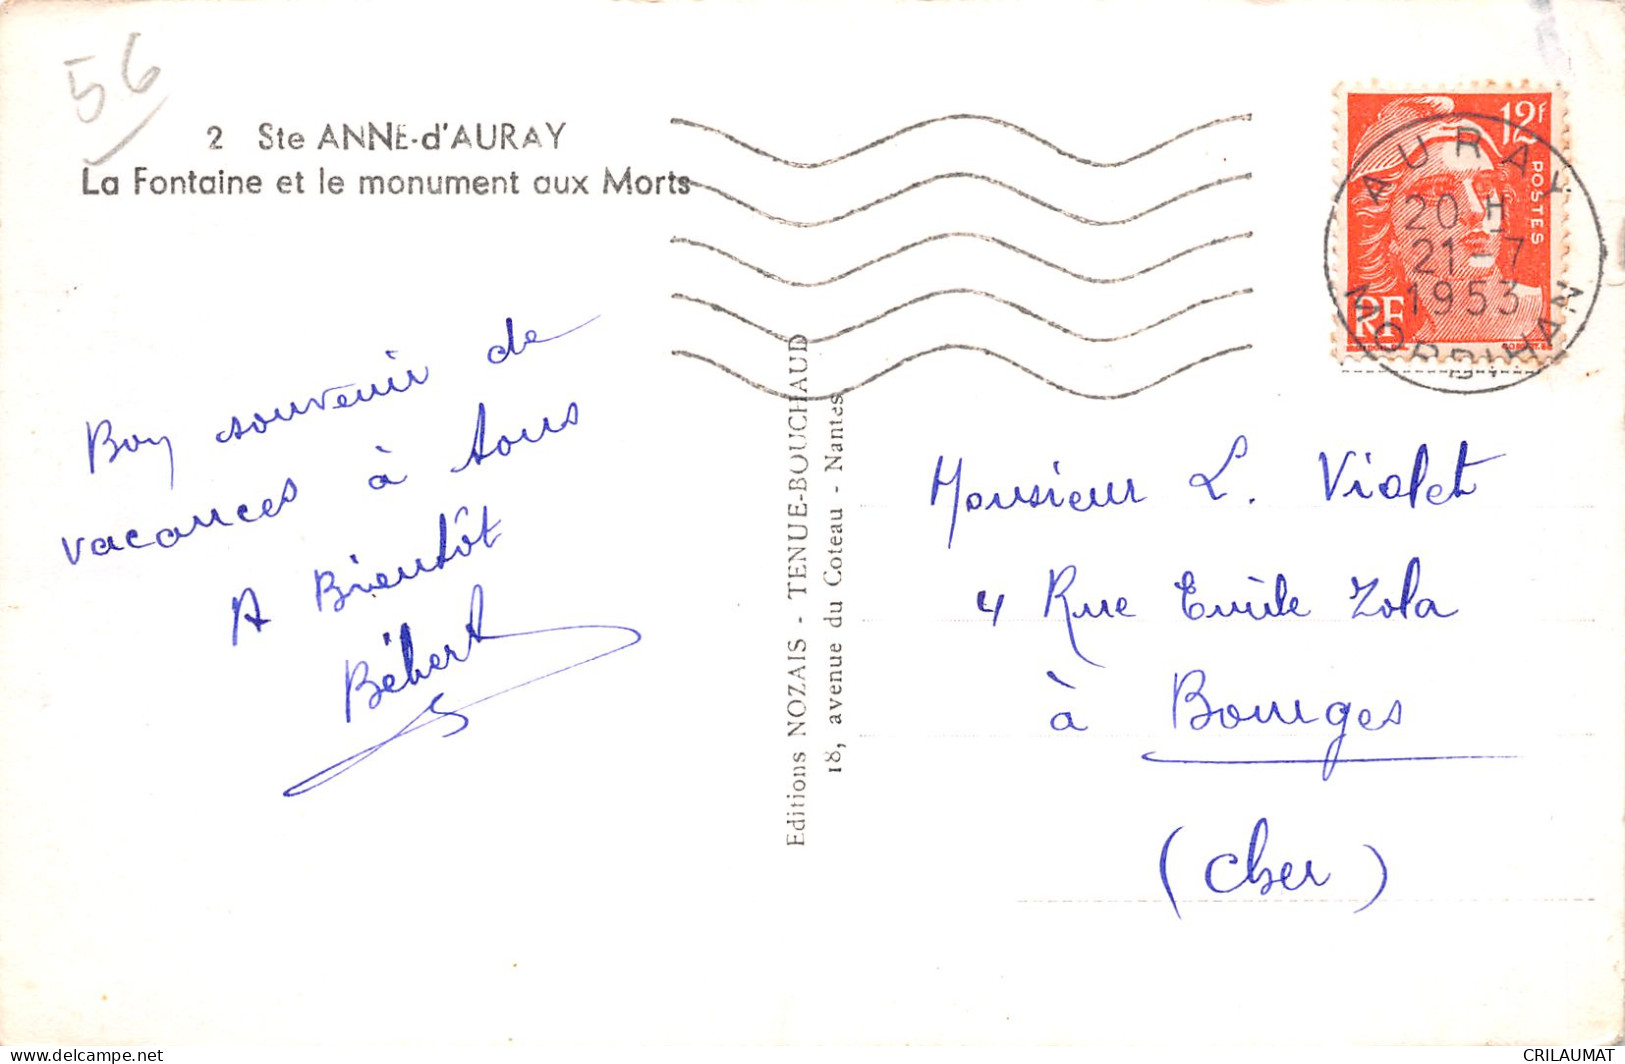 56
2 Ste ANNE-d'AURAY
La Fontaine et le monument aux Morts
12f
POSTES
RF
AURAY
20 H
21-7
1953
MORBIHAN
Bon souvenir de
vacances à tous
A Bientôt
Bébert
Editions NOZAIS - TENUE-BOUCHAUD
18, avenue du Coteau - Nantes
Monsieur L. Violet
4 Rue Emile Zola
à Bourges
(Cher)
www.delcampe.net
CRILAUMAT